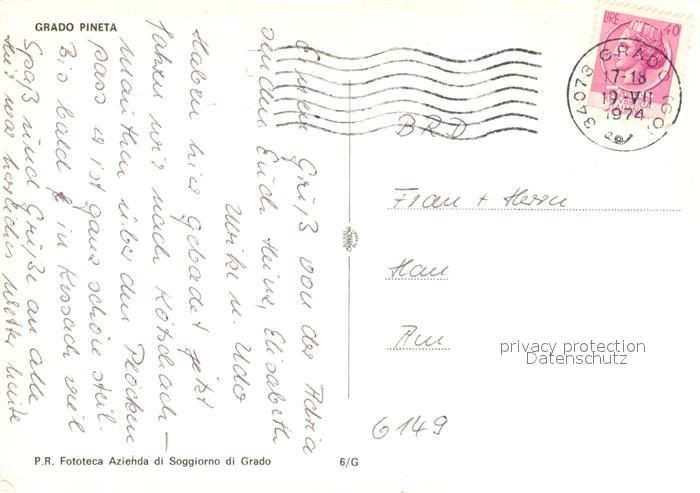 GRADO PINETA
Einen Gruß von der Adria
senden Euch Heinz, Elisabeth
Ulrike u. Udo
Haben hier gebadet jetzt
fahren wir nach Kötschach-
Mauthen über den Plöcken
pass es ist ganz schön steil.
Bis bald in Kissach viel
Spaß und Grüße an alle
hier war herrliches Wetter heute
P.R. Fototeca Azienda di Soggiorno di Grado
6/G
LIRE 40
34073 GRADO (GO)
17-18
19 VII
1974
BRD
Frau + Herrn
Hau
Am
6149
privacy protection
Datenschutz